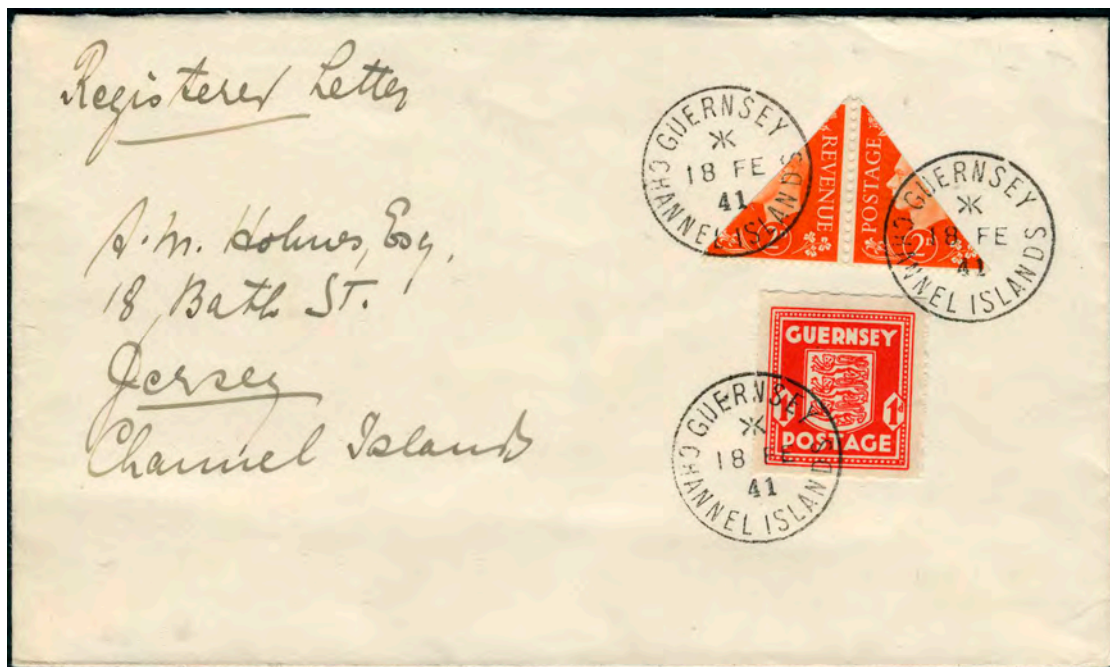 Registered Letter
A. M. Holmes, Esq.
18 Bath St.
Jersey
Channel Islands
GUERNSEY
18 FE
41
CHANNEL ISLANDS
REVENUE
POSTAGE
2D
GUERNSEY
18 FE
41
CHANNEL ISLANDS
GUERNSEY
1D 1D
POSTAGE
GUERNSEY
18 FE
41
CHANNEL ISLANDS